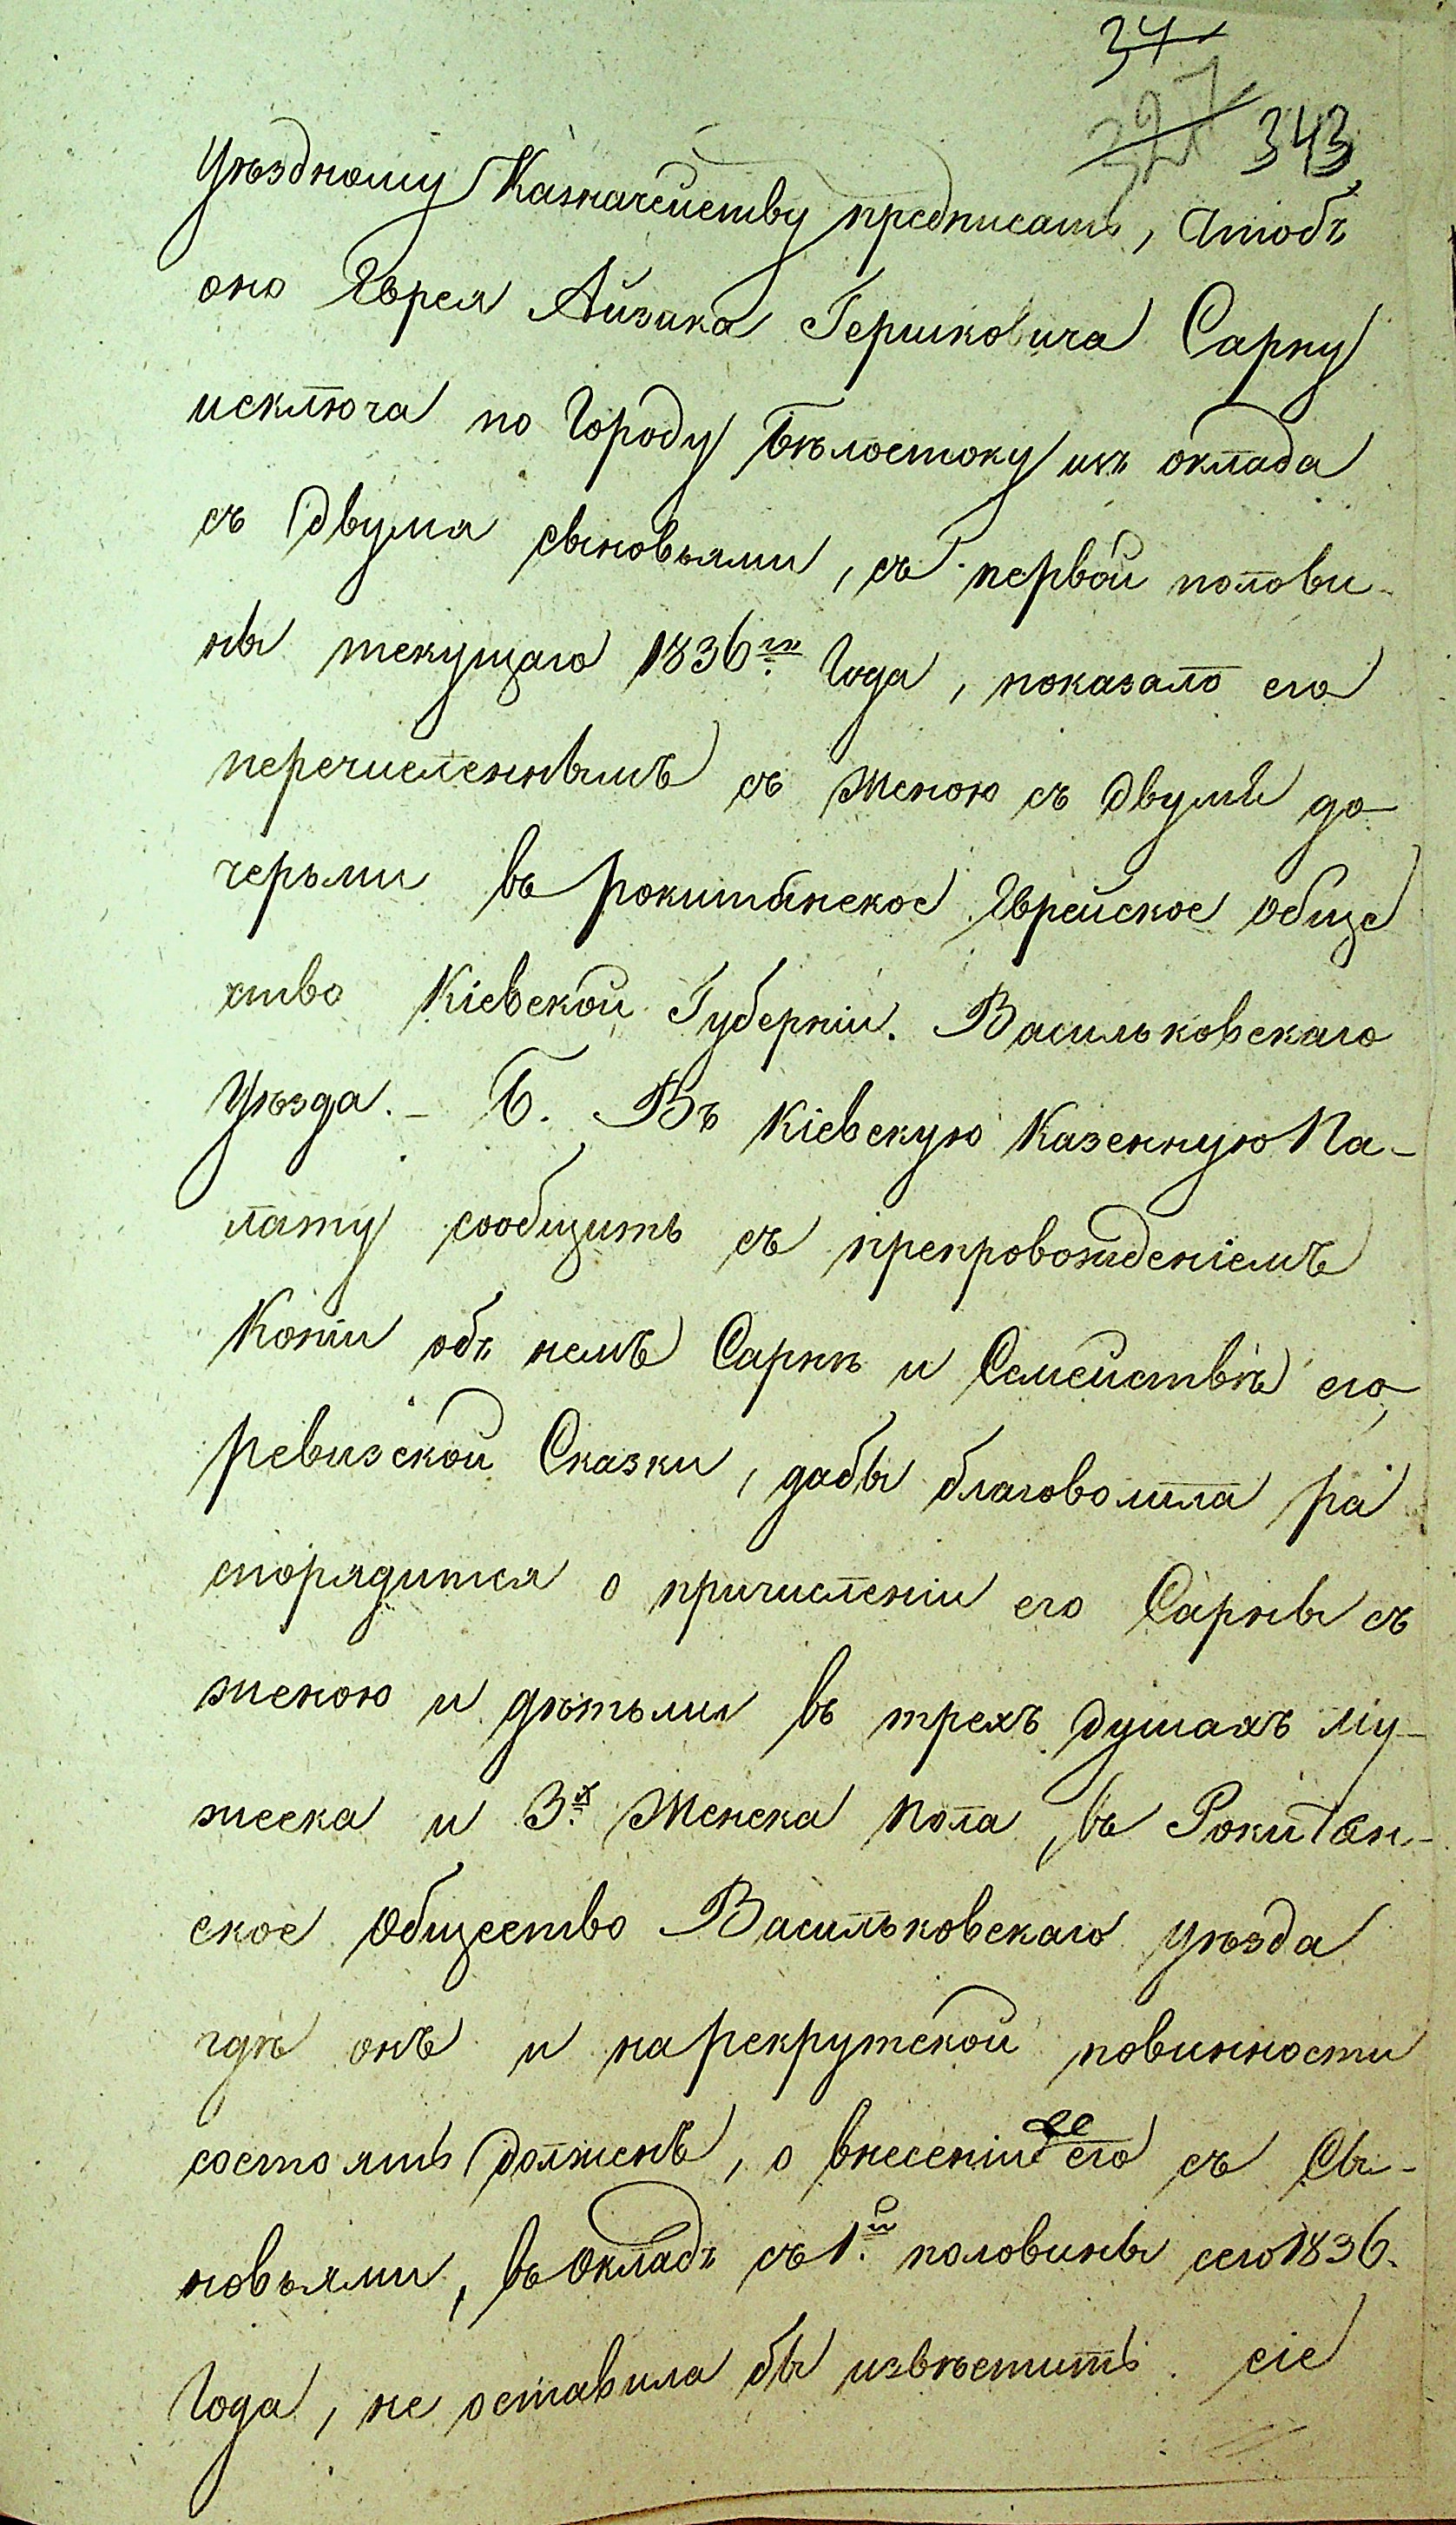 34
327 343
Уѣздному Казначейству предписать, Чтобъ
оно Еврея Айзика Гершковича Сарну
исключа по Городу Бѣлостоку изъ оклада
съ двумя сыновьями, съ первой полови-
ны текущаго 1836го Года, показало его
перечисленнымъ съ женою съ двумя до-
черьми въ рокитанское Еврейское обще
ство Кіевской Губерніи. Васильковскаго
Уѣзда. – Б. Въ Кіевскую Казенную Па-
лату сообщить съ препровожденіемъ
Копіи объ немъ Сарнѣ и Семействѣ его,
ревизской Сказки, дабы благоволила ра
спорядится о причисленіи его Сарны съ
женою и дѣтьми въ трехъ душахъ му-
жеска и 3.х Женска Пола, въ Рокитан-
ское Общество Васильковскаго уѣзда
гдѣ онъ и на рекрутской повинности
состоять долженъ, о внесеніи же его съ Сы-
новьями, въ Окладъ съ 1.й половины сего 1836.
Года, не оставила бы извѣстить. сіе